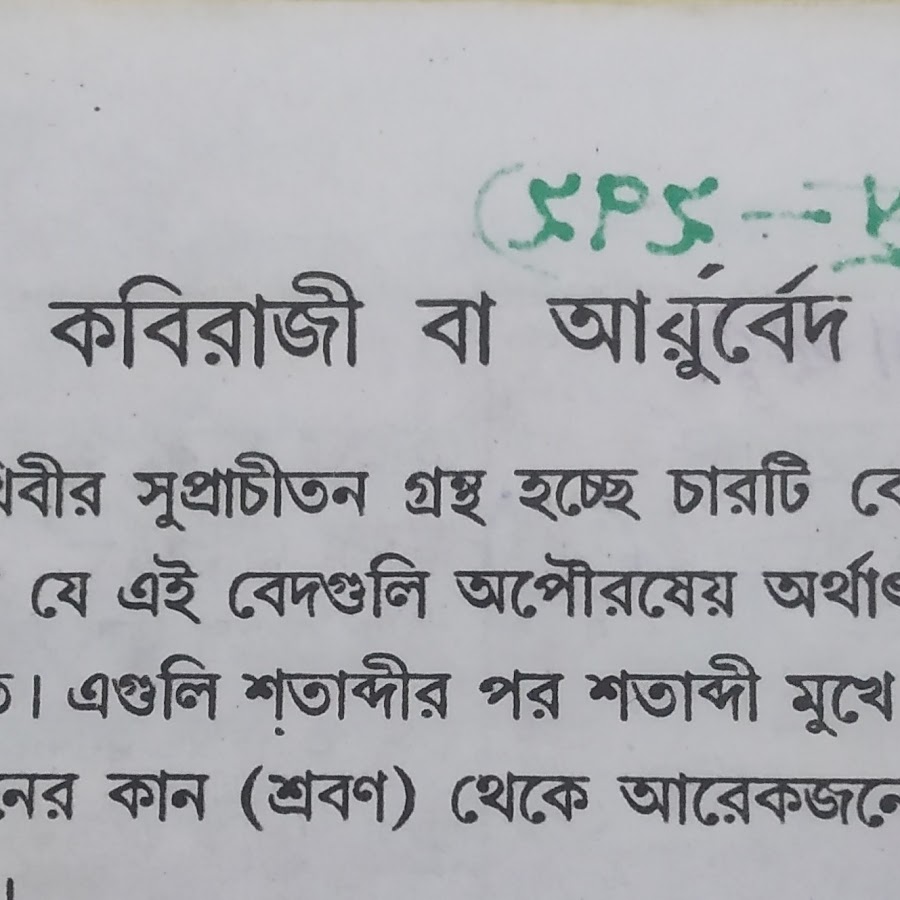 (SPS —
কবিরাজী বা আর্য়ুর্বেদ
সুপ্রাচীতন গ্রন্থ হচ্ছে চারটি
যে এই বেদগুলি অপৌরষেয় অর্থাৎ
। এগুলি শতাব্দীর পর শতাব্দী মুখে
কান (শ্রবণ) থেকে আরেকজনে
।